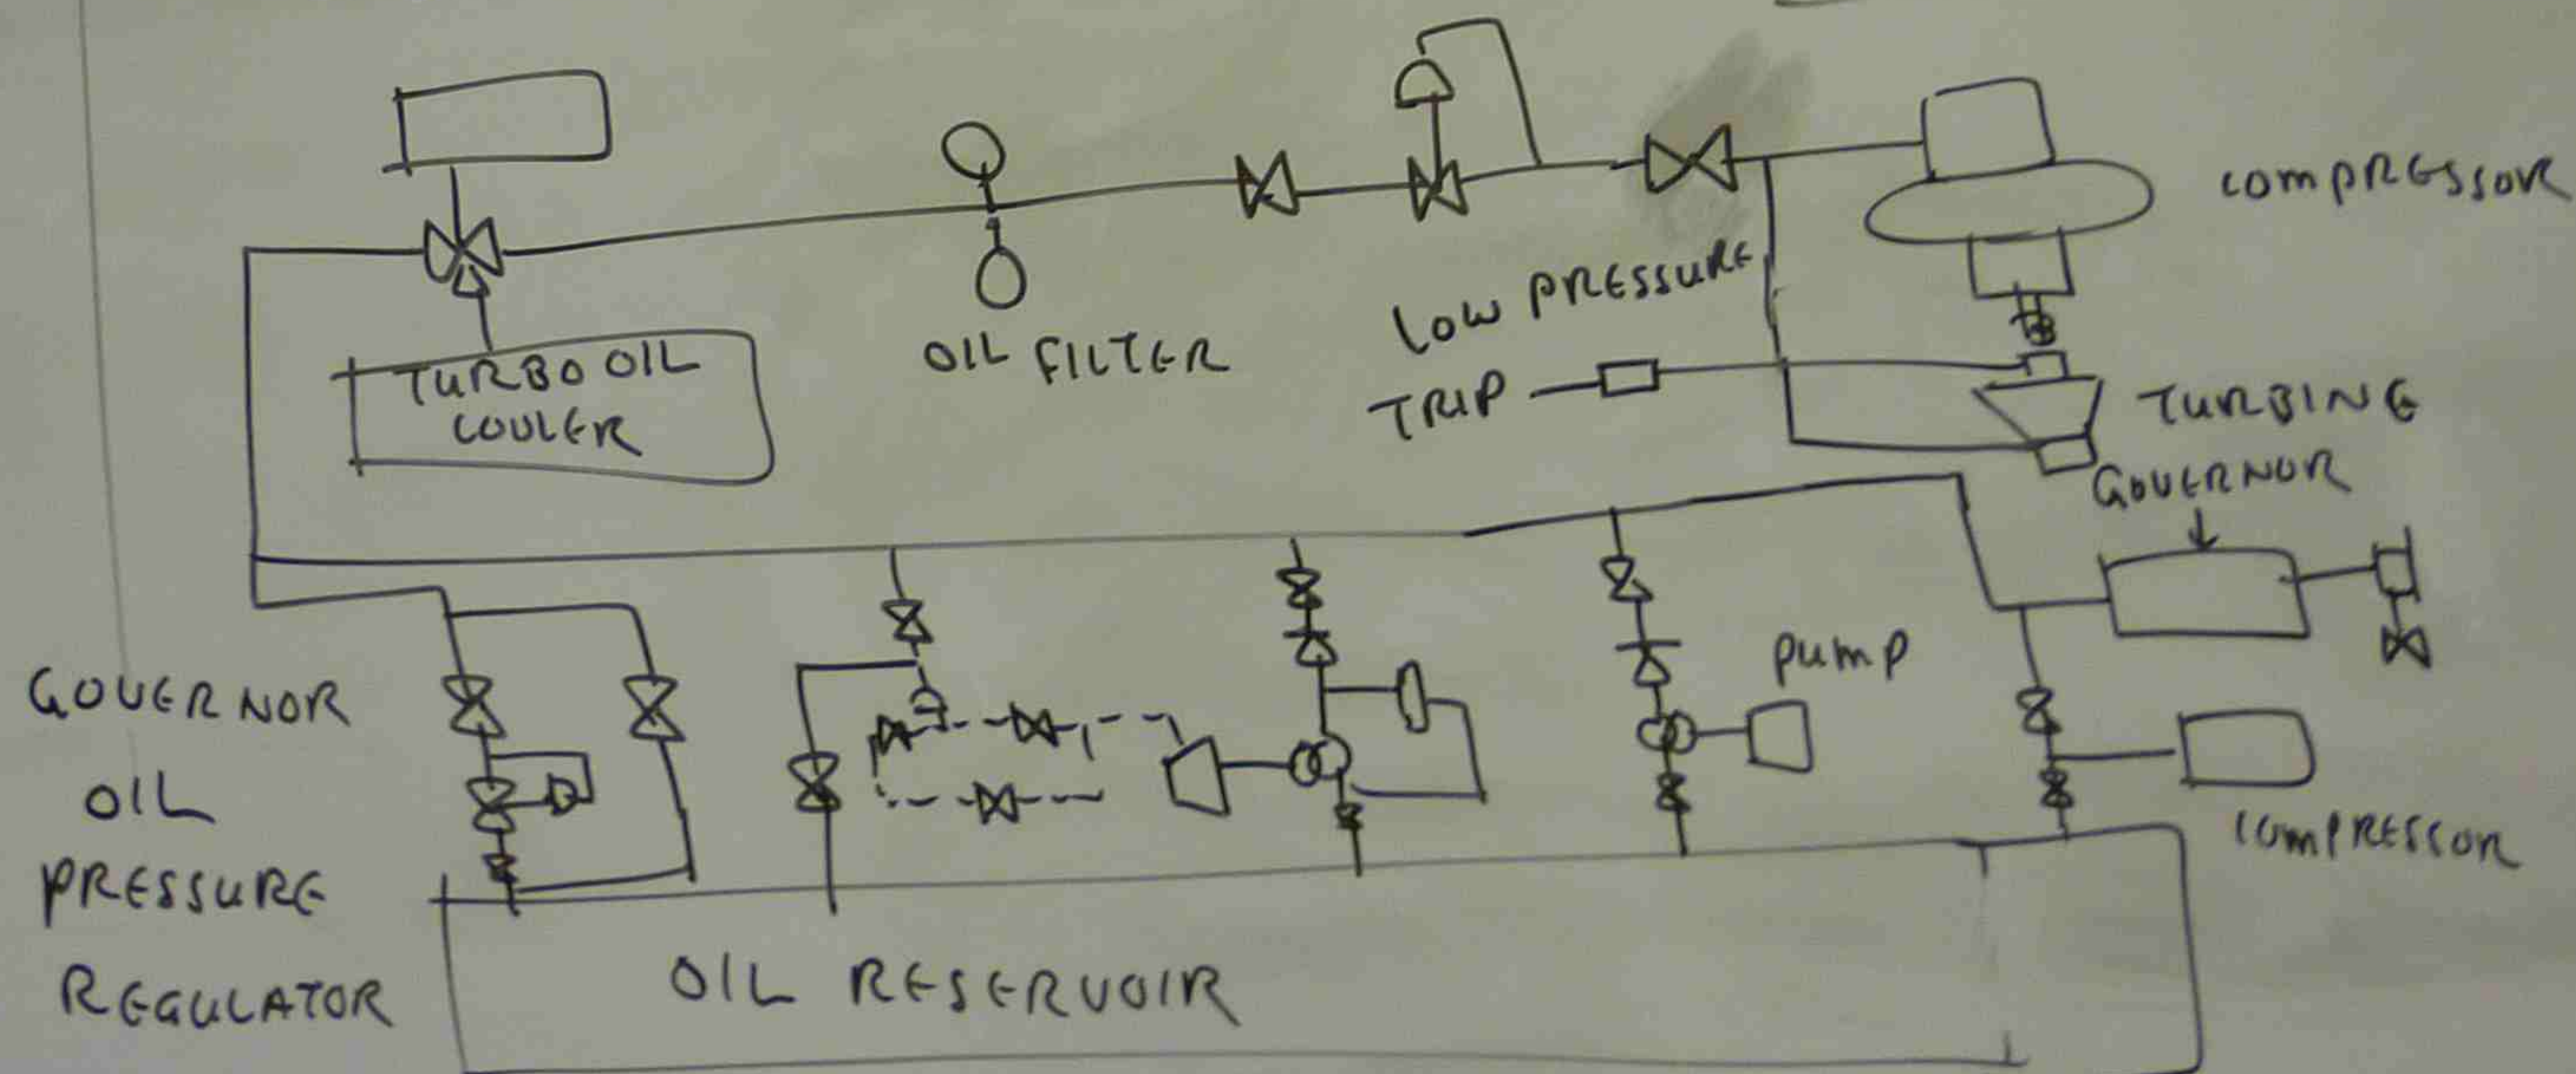 COMPRESSOR
TURBO OIL
COOLER
OIL FILTER
LOW PRESSURE
TRIP
TURBINE
GOVERNOR
PUMP
GOVERNOR
OIL
PRESSURE
REGULATOR
COMPRESSOR
OIL RESERVOIR